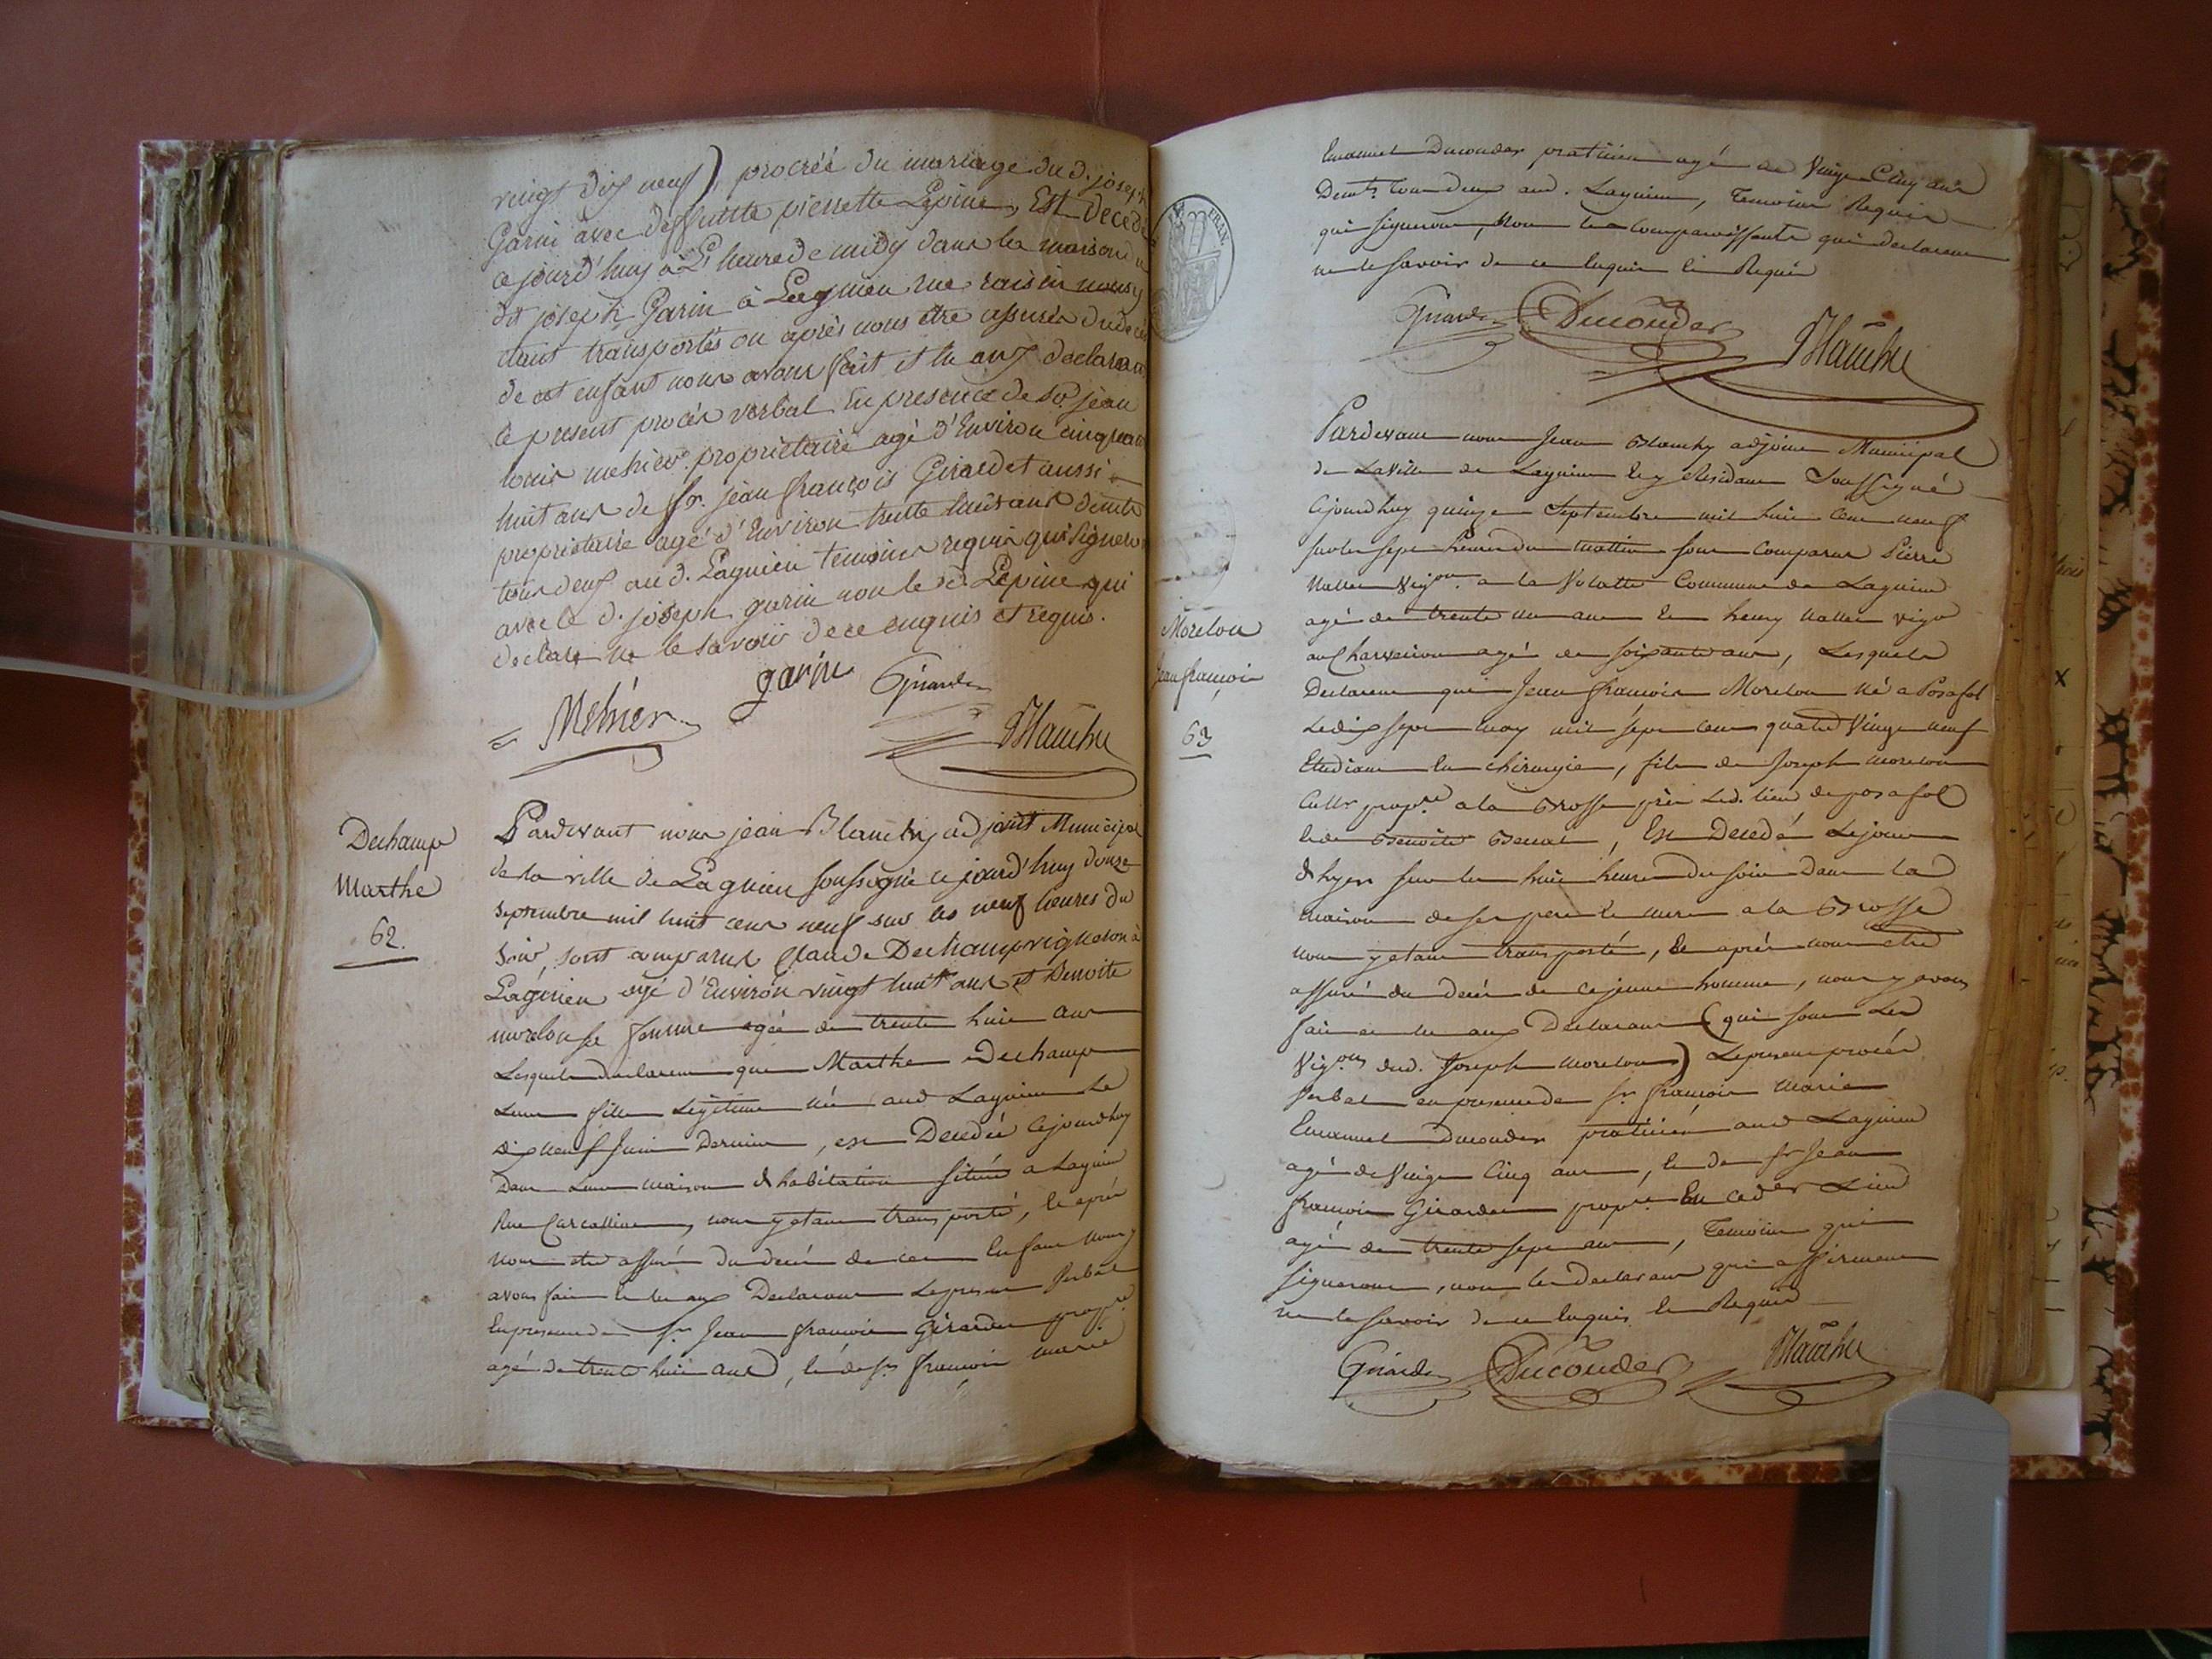 vingt dix neuf), procréé du mariage du d. joseph
Garin avec deffunte pierrette Lepine, Est decedé
ce jourd'huy à L'heure de midy dans la maison du
dit joseph Garin à Lagnieu rue raisin nous y
etant transportés ou après nous etre assurés du deces
de cet enfant nous avons fait et lu aux declarans
le present procès verbal En presence de Sr. jean
louis mehier proprietaire agé d'Environ cinquante
huit ans de Sr. jean françois Girardet aussi
proprietaire agé d'Environ trente huit ans demts
tous deux aud. Lagnieu temoins requis qui signeront
avec le d. joseph garin non le d. Lepine qui
declare ne le savoir de ce enquis et requis.
Mehier garin Girardet
Blanchy
Dechamp
Marthe
62.
Pardevant nous jean Blanchy adjoint Municipal
de la ville de Lagnieu soussigné ce jourd'huy douze
septembre mil huit cent neuf sur les neuf heures du
soir, sont comparus Claude Dechamp vigneron à
Lagnieu agé d'Environ vingt huit ans et Benoite
morelon sa femme agée de trente huit ans
Lesquels declarent que Marthe Dechamp
Leur fille Legitime née aud Lagnieu Le
dix neuf Juin Dernier, est Decedée Cejourdhuy
Dans Leur maison d'habitation située a Lagnieu
Rue, nous y etant transporté, et après
nous etre assuré du decés de cet Enfant nous y
avons fait et lu aux Declarant Le present Verbal
En presence de Sr. Jean françois Girardet propre.
agé de trente huit ans, et de Sr françois marie
Emanuel Ducouder praticien agé de Vingt Cinq ans
Demts. tous deux aud. Lagnieu, Temoins Requis
qui signeront, Non les comparoissants qui declarent
ne le savoir de ce Enquis et Requis
Girardet Ducouder Blanchy
Morelon
Jean françois
63
Pardevant nous Jean Blanchy adjoint Municipal
de La Ville de Lagnieu y Residant Soussigné
Cejourdhuy quinze Septembre mil huit Cent neuf
sur les sept heures du mattin sont Comparus Pierre
Vallet Vigon a la Volatte Commune de Lagnieu
agé de trente un ans et henry Vallet vigon
au Charveiron agé de soixante ans, Lesquels
Declarent que Jean françois Morelon Né a Posafol
Le dix sept may mil sept cent quatre Vingt neuf
Etudiant En chirurgie, fils de Joseph morelon
Cultr propre a la Brosse près Led. lieu de posafol
et de Benoite, Est Decedé Le jour
d'hyer sur les huit heures du soir Dans la
maison de ses pere et mere a la Brosse
nous y etant transporté, et après nous etre
assuré du decés de ce jeune homme, nous y avons
fait et lu aux Declarant (qui sont Les
Vigons dud. Joseph morelon) Le present procès
Verbal en presence de Sr françois Marie
Emanuel Ducouder praticien aud Lagnieu
agé de Vingt Cinq ans, et de Sr Jean
françois Girardet propre. En Ced er Lieu
agé de trente sept ans, Temoins qui
signeront, non les declarant qui affirment
ne le savoir de ce Enquis et Requis
Girardet Ducouder Blanchy